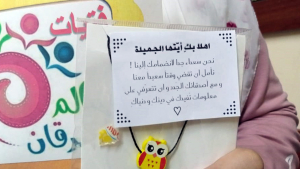 اهلا بكِ أيّتها الجميلة
نحن سعداء جدا لانضمامك إلينا !
نأمل ان تقضي وقتا سعيدا معنا
و مع أصدقائك الجدد و ان تتعرفي على
معلومات تفيدك في دينك و دنياك
فتيات